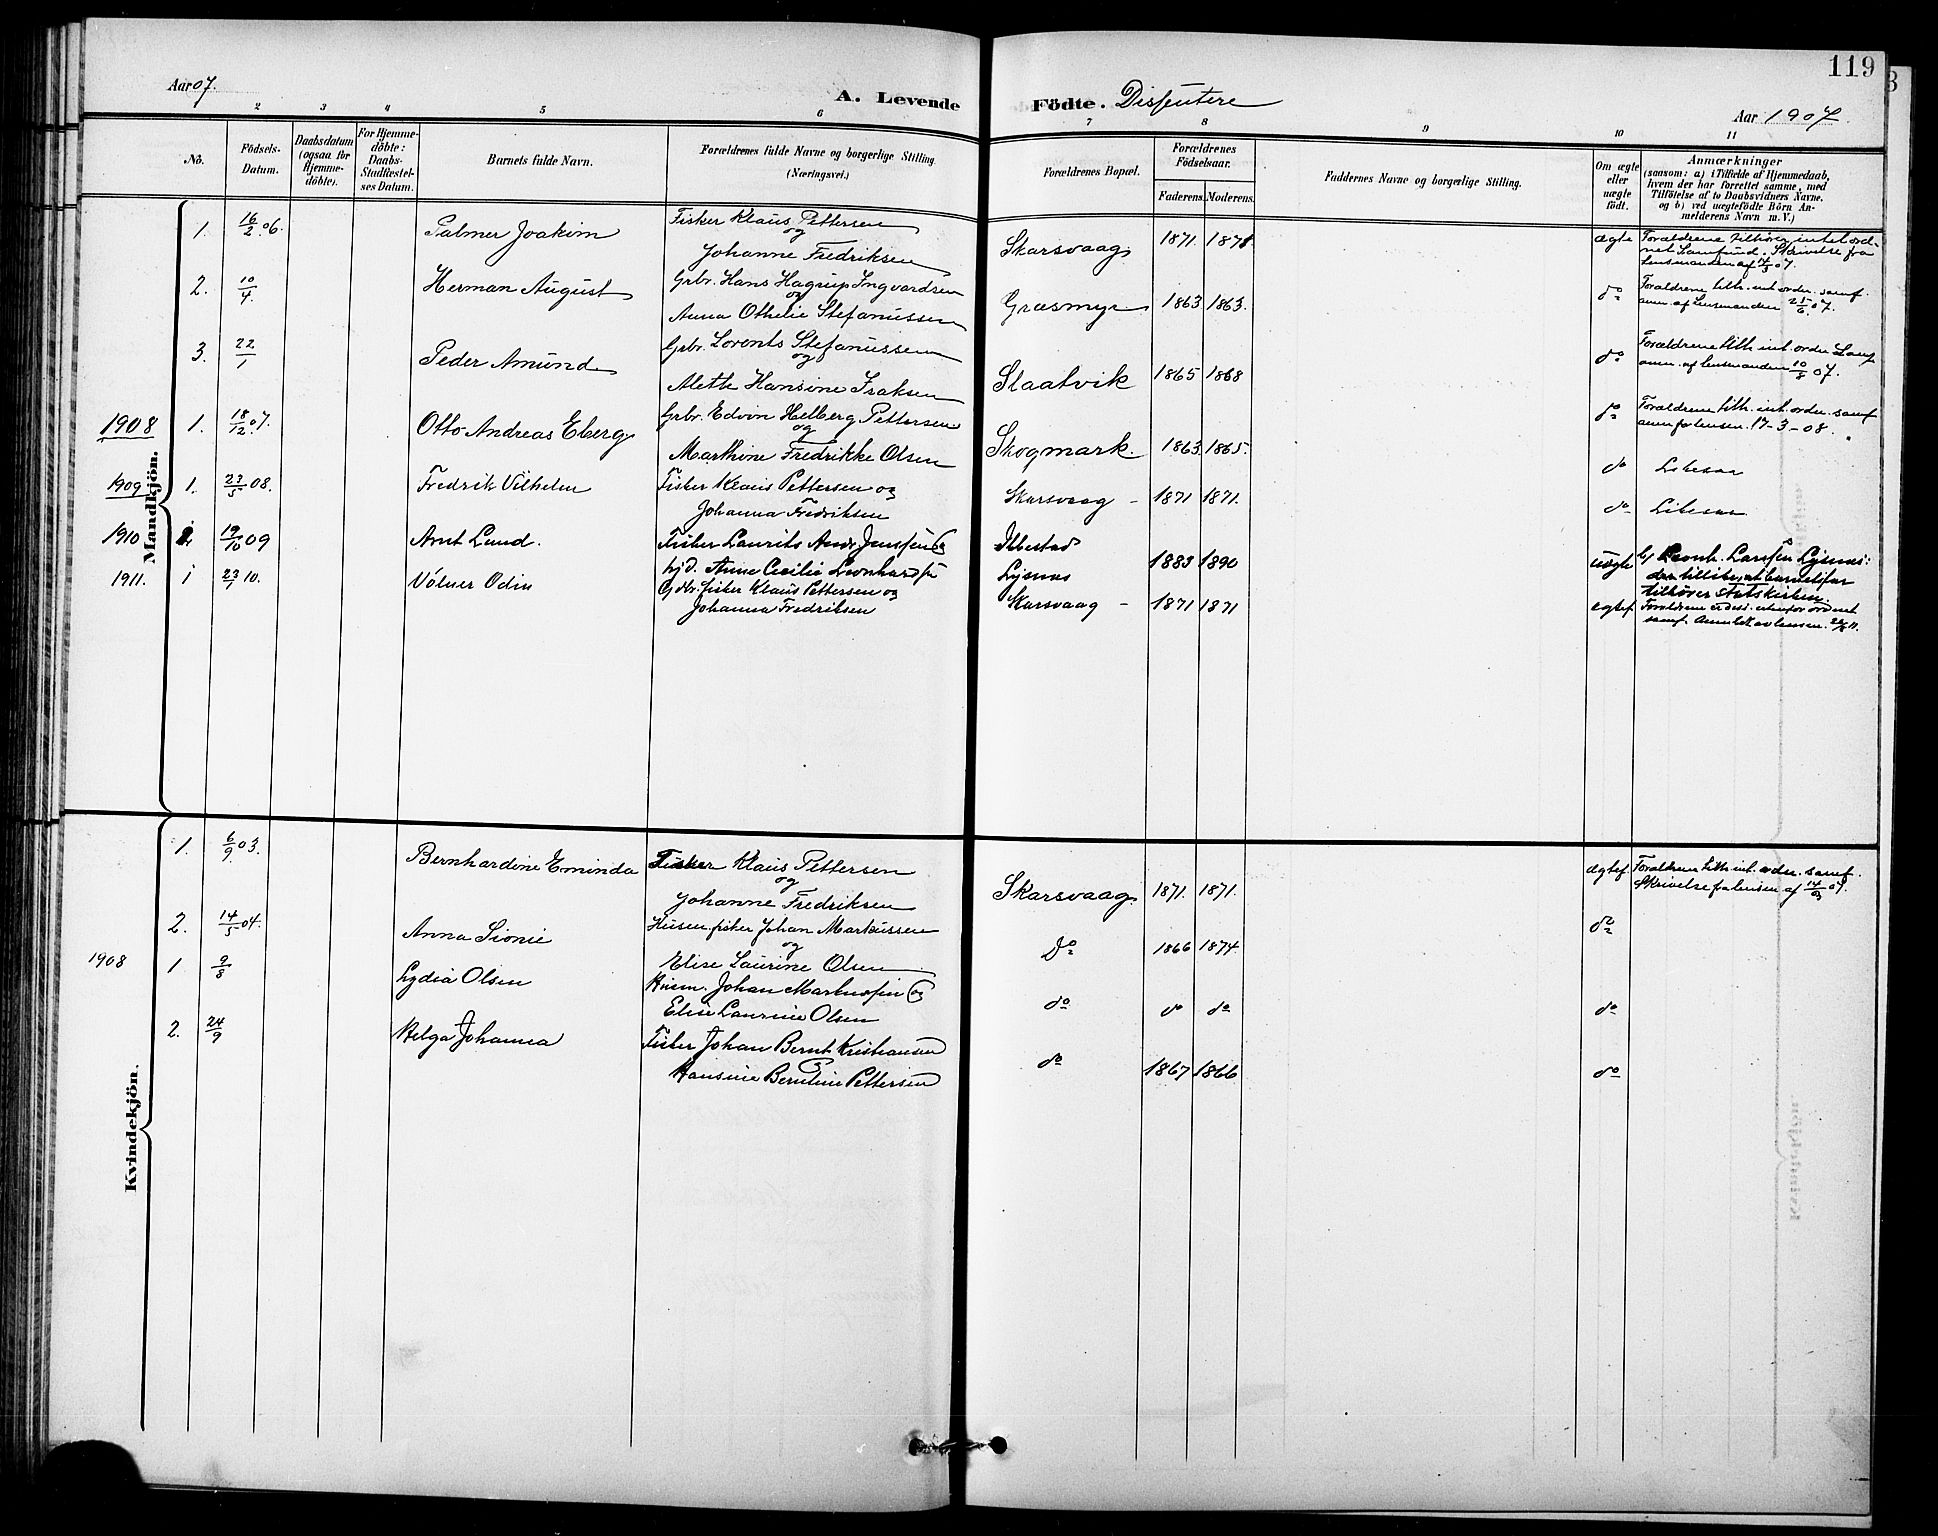 119
Aar 07.
A. Levende Födte. Dissentere
Aar 1907.
2 3 4 5 6 7 8 9 10 11
No.
Födsels-Datum.
Daabsdatum (ogsaa för Hjemme-döbte).
For Hjemme-döbte: Daabs-Stadfæstel-ses Datum.
Barnets fulde Navn.
Forældrenes fulde Navne og borgerlige Stilling.
(Næringsvei.)
Forældrenes Bopæl.
Forældrenes Födselsaar.
Faderens Moderens.
Faddernes Navne og borgerlige Stilling.
Om ægte eller uægte födt.
Anmærkninger
(saasom: a) i Tilfælde af Hjemmedaab,
hvem der har forrettet samme, med
Tilföielse af to Daabsvidners Navne,
og b) ved uægtefödte Börn An-
melderens Navn m. V.)
Mandkjön.
1. 16/2 06. Palmer Joakim Fisker Klaus Pettersen
og
Johanne Fredriksen Skarsvaag 1871. 1871. ægte
Forældrene tilhører intet ord-
net Samfund. Skrivelse fra
Lensmanden af 14/3 07.
2. 10/4 Herman August Grbr. Hans Hagrup Ingvardsen
og
Anna Othelie Stefanussen Græsmyr 1863 1863. do
Forældrene tilh. int. orden. samf.
anm. af Lensmanden 21/6 07.
3. 22/1 Peder Amund Grbr. Lorents Stefanussen
og
Alette Hansine Isaksen Slaatvik 1865 1868 do
Forældrene tilh. int. orden Samf
anm. af lensmanden 10/8 07.
1908 1. 18/12 07. Otto Andreas Eberg Grbr. Edvin Helberg Pettersen
og
Marthine Fredrikke Olsen Skogmark. 1863. 1865. do
Forældrene tilh. int. orden. samf
anm fo lensm. 17-3-08.
1909 1. 23/5 08. Fredrik Vilhelm Fisker Klaus Pettersen og
Johanna Fredriksen Skarsvaag 1871 1871. do
1910 19/10 09 Arnt Lund. Fisker Laurits Andr. Jenssen og
hjd. Anne Cecilie Leonhardsn Ibbestad
Lysnes 1883 1890 uægte
1911. 1 23/7 10. Volner Odin Gdbr. fisker Klaus Pettersen og
Johanna Fredriksen Skarsvaag 1871 1871 egtef.
tilhører Statskirken.
Kvindekjön.
1. 6/9 03. Bernhardine Eminda Fisker Klaus Pettersen
og
Johanne Fredriksen Skarsvaag 1871. 1871. ægtef.
Forældrene tilh int. orden. samf.
Skrivelse fra lensm af 14/3 07.
2. 14/5 04. Anna Sionie Husm. fisker Johan Markussen
og
Elise Laurine Olsen Do 1866 1874. do
1908 1 9/8 Lydia Olsen Husm. Johan Markussen og
Elise Laurine Olsen do do do do
2. 24/9 Helga Johanna Fisker Johan Bernt Kristiansen
Hansine Berntine Pettersen do 1867 1866 do